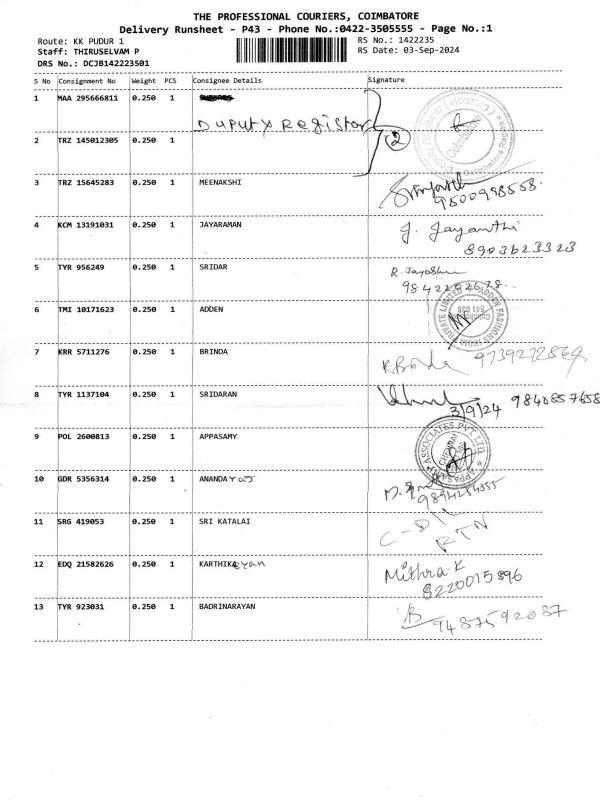 THE PROFESSIONAL COURIERS, COIMBATORE
Delivery Runsheet - P43 - Phone No.:0422-3505555 - Page No.:1
Route: KK PUDUR 1 RS No.: 1422235
Staff: THIRUSELVAM P RS Date: 03-Sep-2024
DRS No.: DCJB142223501
S No Consignment No Weight PCS Consignee Details Signature
1 MAA 295666811 0.250 1
Duputy Registor
2 TRZ 145012305 0.250 1 2
3 TRZ 15645283 0.250 1 MEENAKSHI
9500998558.
4 KCM 13191031 0.250 1 JAYARAMAN J. Jayanthi
8903623323
5 TYR 956249 0.250 1 SRIDAR R. Jayashree
6 TMI 10171623 0.250 1 ADDEN
ADDEN FASHIONS INDIA PRIVATE LIMITED
7 KRR 5711276 0.250 1 BRINDA
8 TYR 1137104 0.250 1 SRIDARAN 9840857658
3/9/24
9 POL 2600813 0.250 1 APPASAMY
APPASAMY ASSOCIATES PVT. LTD.
CHENNAI
10 GDR 5356314 0.250 1 ANANDAraj
11 SRG 419053 0.250 1 SRI KATALAI
RTN
12 EDQ 21582626 0.250 1 KARTHIKeyan Mithra.K
8220015896
13 TYR 923031 0.250 1 BADRINARAYAN B
9487592087